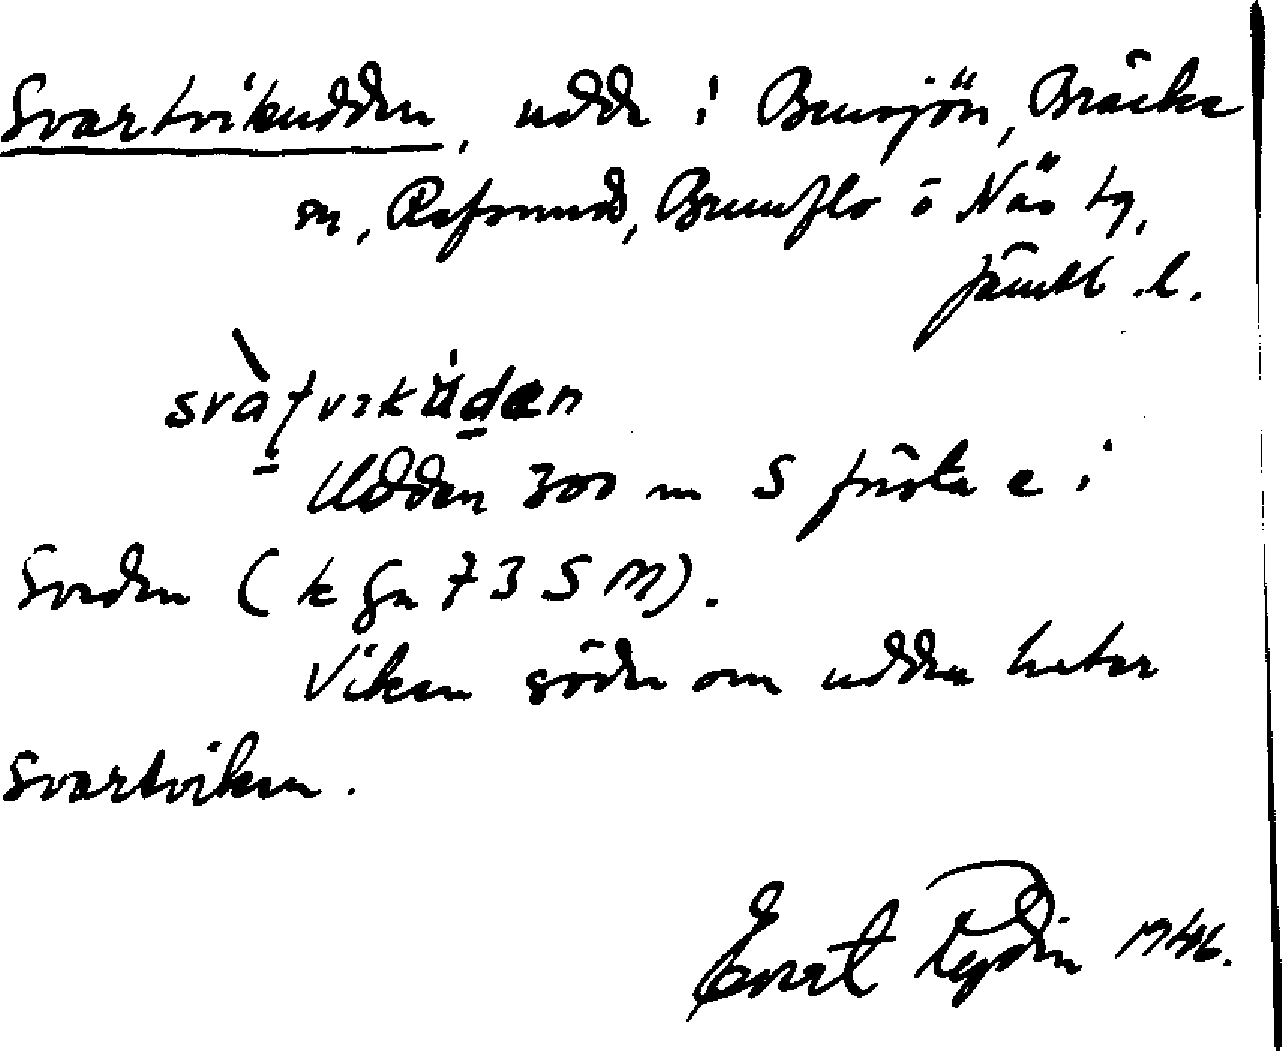 Svartvikudden, udde i Bensjön, Bräcke
sn, Refsunds, Brunflo o Näs tg,
Jämtl. l.
svàtvikúdæn
Udden 300 m S första e i
Sörden (k Ga 73 S M).
Viken söder om udden heter
Svartviken.
Evert Lydin 1946.